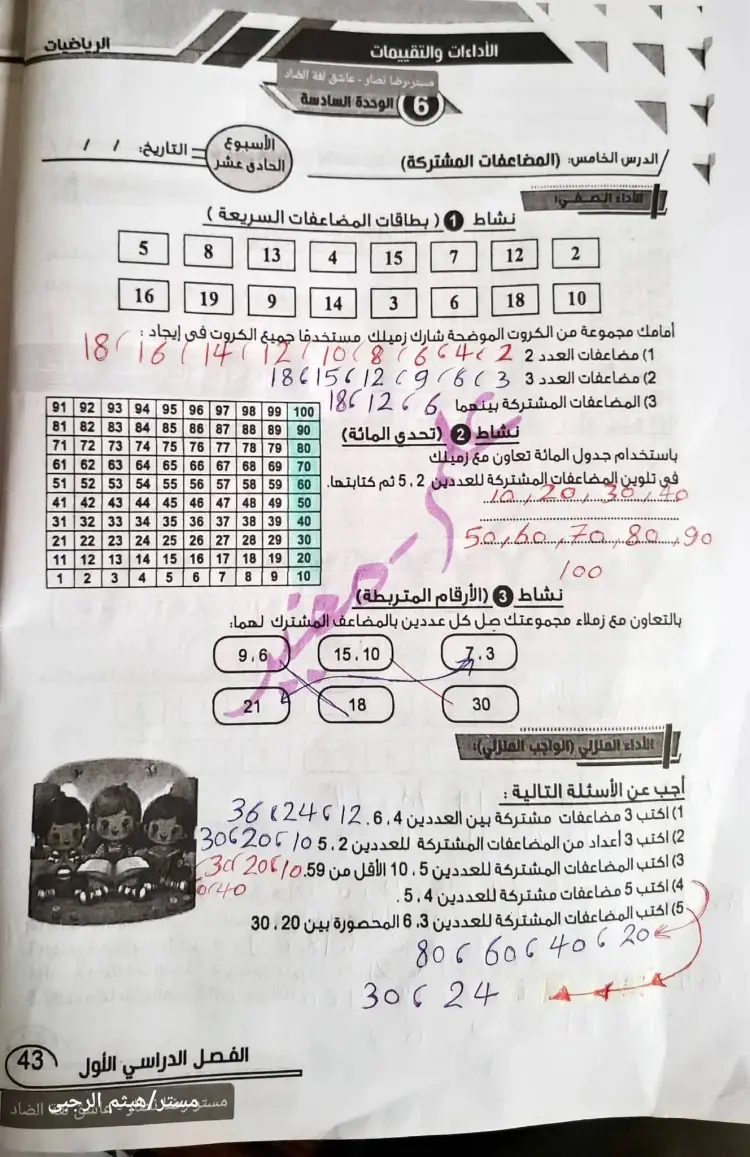 الرياضيات
الأداءات والتقييمات
مستر رضا نصار - عاشق لغة الضاد
6 الوحدة السادسة
الدرس الخامس: (المضاعفات المشتركة)
الأسبوع الحادى عشر
التاريخ: / /
الأداء الصفي:
نشاط 1 ( بطاقات المضاعفات السريعة )
2 12 7 15 4 13 8 5
10 18 6 3 14 9 19 16
أمامك مجموعة من الكروت الموضحة شارك زميلك مستخدمًا جميع الكروت فى إيجاد :
1) مضاعفات العدد 2 2 ، 4 ، 6 ، 8 ، 10 ، 12 ، 14 ، 16 ، 18
2) مضاعفات العدد 3 3 ، 6 ، 9 ، 12 ، 15 ، 18
3) المضاعفات المشتركة بينهما 6 ، 12 ، 18
نشاط 2 (تحدي المائة)
باستخدام جدول المائة تعاون مع زميلك
فى تلوين المضاعفات المشتركة للعددين 2 ، 5 ثم كتابتها.
10 , 20 , 30 , 40
50 , 60 , 70 , 80 , 90
100
91 92 93 94 95 96 97 98 99 100
81 82 83 84 85 86 87 88 89 90
71 72 73 74 75 76 77 78 79 80
61 62 63 64 65 66 67 68 69 70
51 52 53 54 55 56 57 58 59 60
41 42 43 44 45 46 47 48 49 50
31 32 33 34 35 36 37 38 39 40
21 22 23 24 25 26 27 28 29 30
11 12 13 14 15 16 17 18 19 20
1 2 3 4 5 6 7 8 9 10
نشاط 3 (الأرقام المتربطة)
بالتعاون مع زملاء مجموعتك صل كل عددين بالمضاعف المشترك لهما:
3 ، 7 10 ، 15 6 ، 9
30 18 21
الأداء المنزلي (الواجب المنزلي):
أجب عن الأسئلة التالية :
1) اكتب 3 مضاعفات مشتركة بين العددين 4 ، 6 . 12 ، 24 ، 36
2) اكتب 3 أعداد من المضاعفات المشتركة للعددين 2 ، 5 10 ، 20 ، 30
3) اكتب المضاعفات المشتركة للعددين 5 ، 10 الأقل من 59. 10 ، 20 ، 30 ،
4) اكتب 5 مضاعفات مشتركة للعددين 4 ، 5 .
5) اكتب المضاعفات المشتركة للعددين 3 ، 6 المحصورة بين 20 ، 30
20 ، 40 ، 60 ، 80
24 ، 30
الفصل الدراسي الأول
43
مستر/هيثم الرجبى